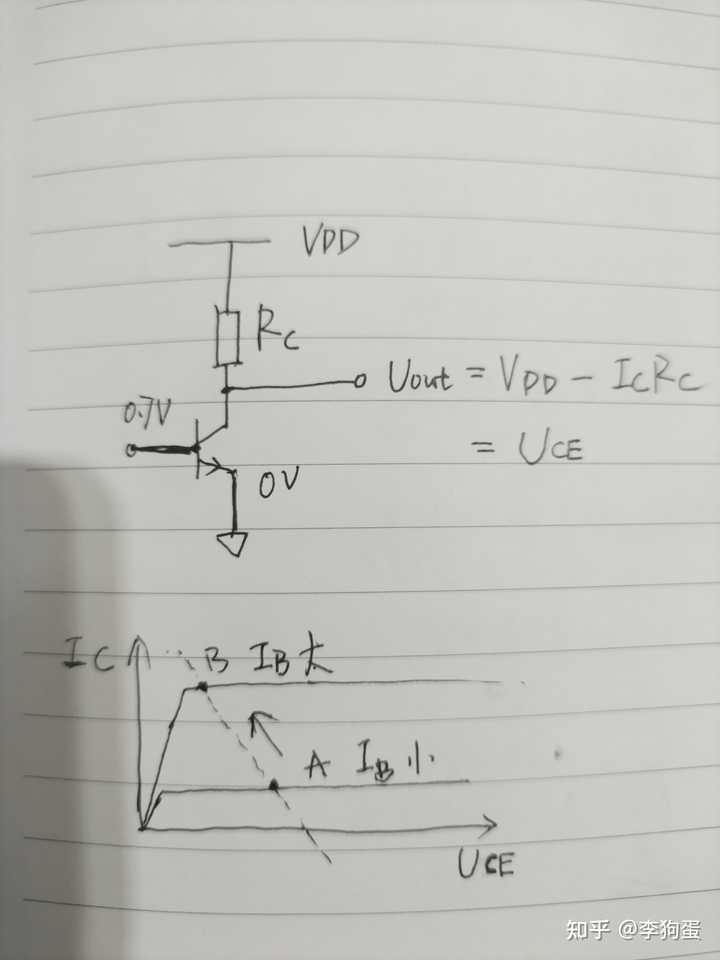 VDD
Rc
Uout = VDD - IcRc
0.7V
= UCE
0V
Ic
B IB大
A IB小
UCE
知乎 @李狗蛋